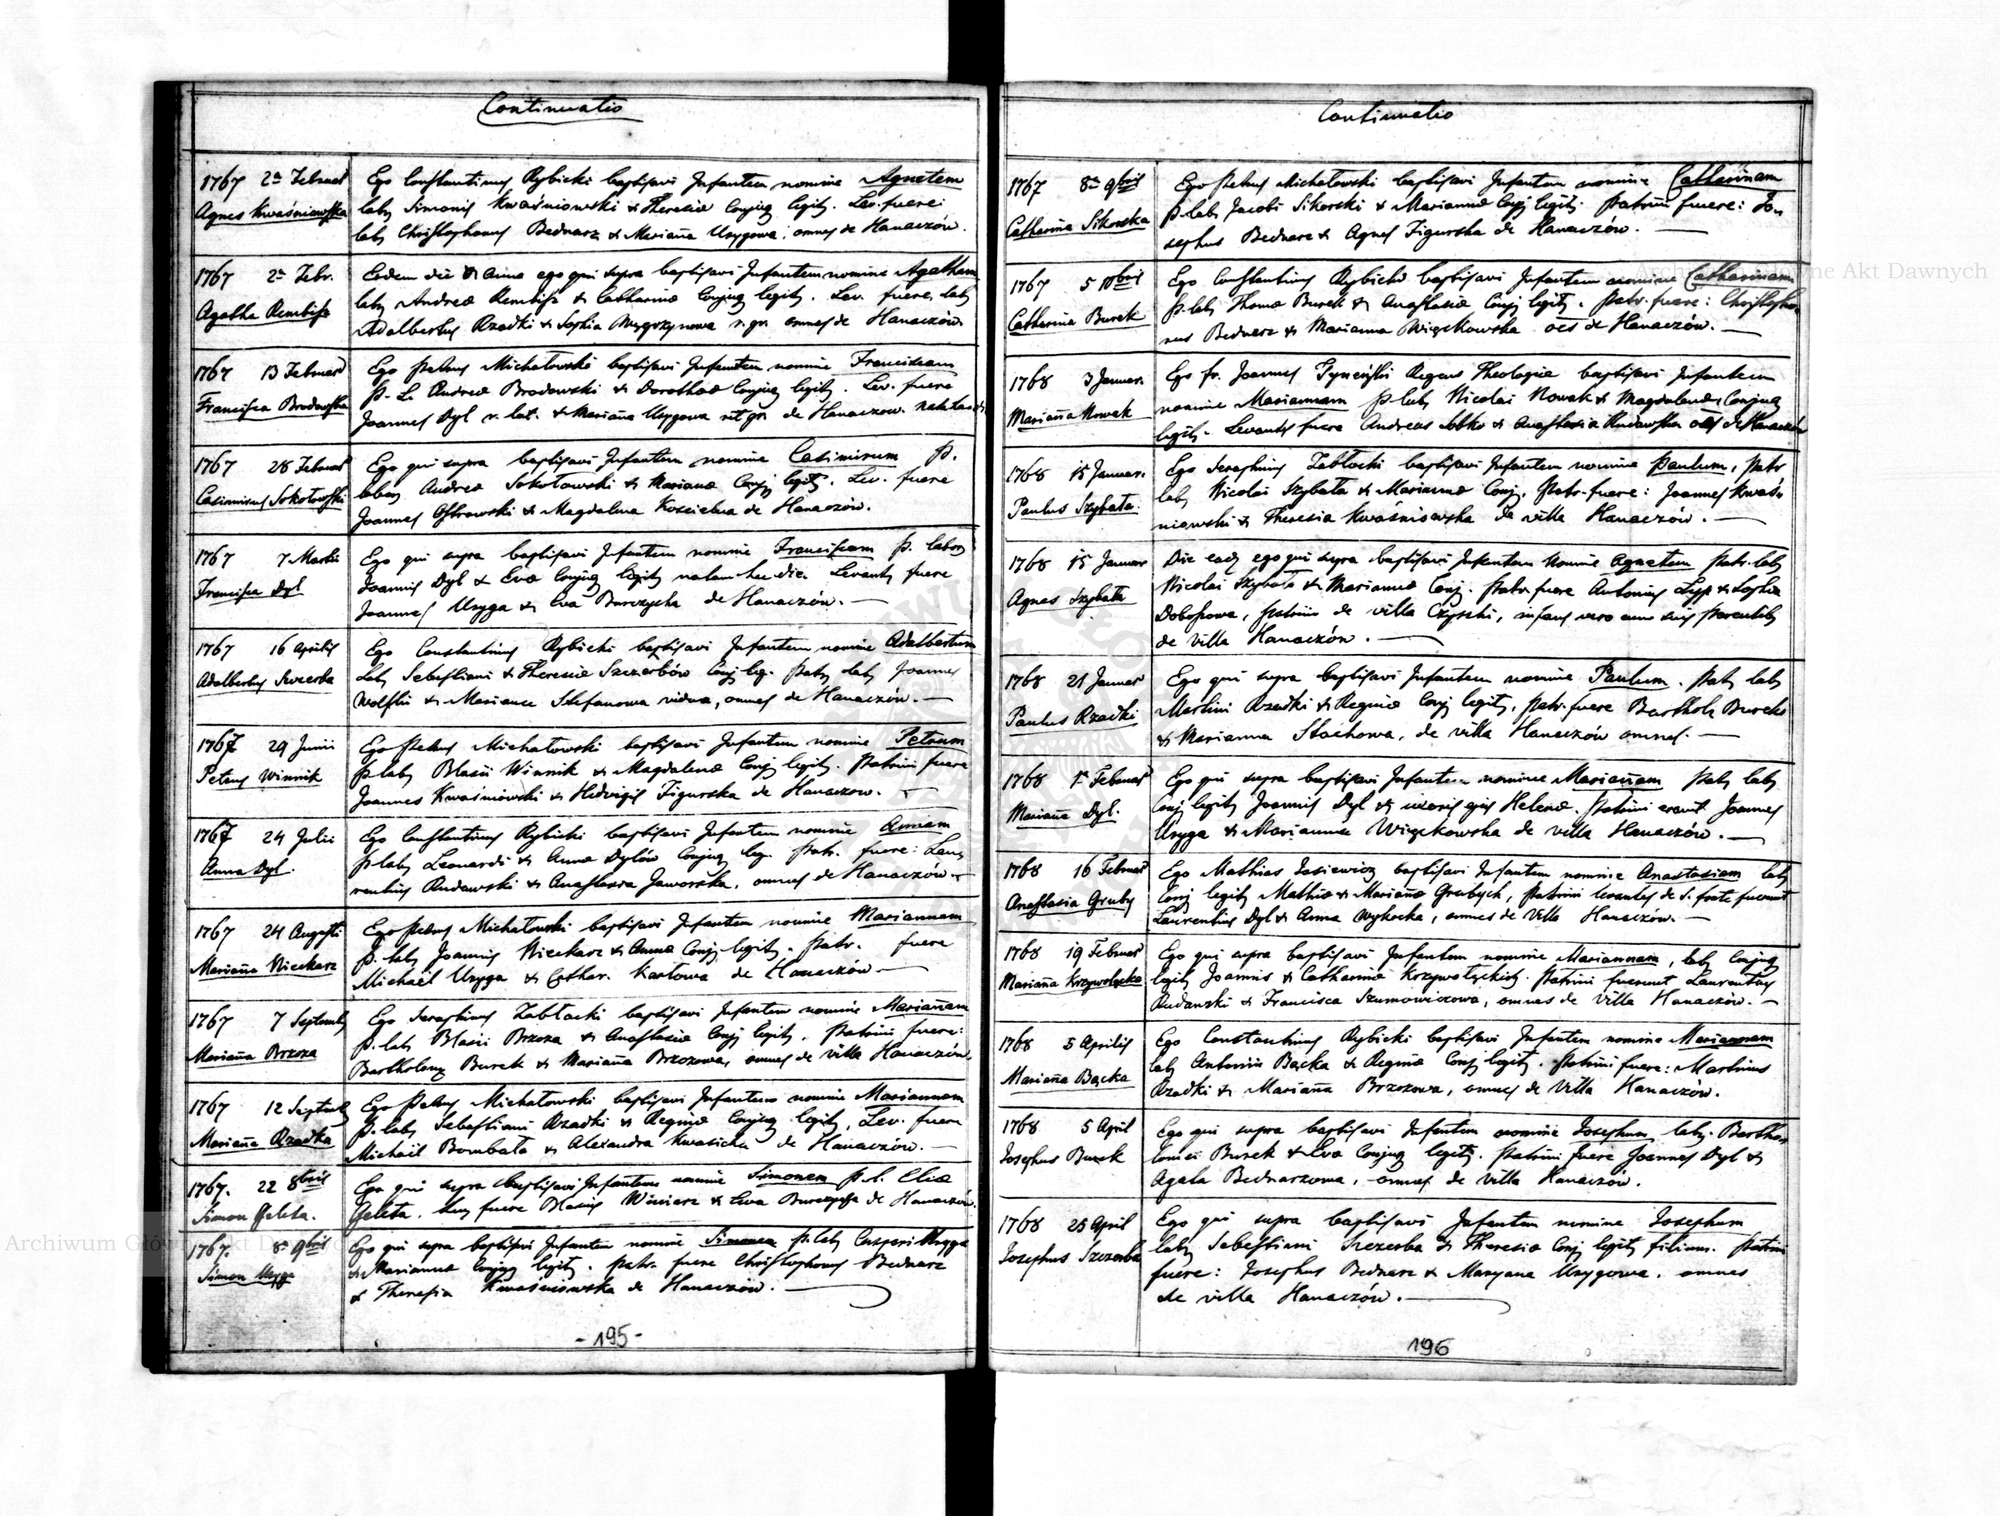 Continuatio
1767 2a Februar
Agnes Kwaśniowska
Ego Constantinus Rybicki baptisavi Infantem nomine Agnetem
lab Simonis Kwaśniowski & Theresiæ Conjug legit. Lev. fuere
lab Christophorus Bednarz & Mariaña Uzygowa, omnes de Hanaczów.
1767 2a Febr.
Agatha Rembisz
Eodem die & anno ego qui supra baptisavi Infantem nomine Agatham
lab Andreæ Rembisz & Catharinæ Conjug legit. Lev. fuere, lab
Adalbertus Rzadki & Sophia Węgrzynowa omnes de Hanaczów.
1767 13 Februar
Francisca Brodowska
Ego Petrus Michałowski baptisavi Infantem nomine Franciscam
P. L. Andreæ Brodowski & Dorotheæ Conjug legit. Lev. fuere
Joannes Dyl r. lat. & Mariaña Uzygowa de Hanaczow.
1767 28 Februar
Casimirus Sokołowski
Ego qui supra baptisavi Infantem nomine Casimirum P.
labor Andreæ Sokołowski & Marianæ Conj legit. Lev. fuere
Joannes Ostrowski & Magdalena Kościelna de Hanaczów.
1767 7 Martii
Francisca Dyl
Ego qui supra baptisavi Infantem nomine Franciscam P. labor
Joannis Dyl & Evæ Conjug legit natam Levant fuere
Joannes Uzyga & Eva Burczycha de Hanaczów.
1767 16 Aprilis
Adalbertus Szczerba
Ego Constantinus Rybicki baptisavi Infantem nomine Adalbertum
Lab Sebastiani & Theresiæ Szczerbów Conj leg. Patr lab Joannes
Wolski & Marianna Stefanowa vidua, omnes de Hanaczów.
1767 29 Junii
Petrus Winnik
Ego Petrus Michałowski baptisavi Infantem nomine Petrum
P. lab Blasii Winnik & Magdalenæ Conj legit. Patrini fuere
Joannes Kwaśniowski & Hedvigis Figurska de Hanaczow.
1767 24 Julii
Anna Dyl.
Ego Constantinus Rybicki baptisavi Infantem nomine Annam
P. lab Leonardi & Annæ Dylów Conjug leg. Patr. fuere: Lau
rentius Rudawski & Anastasia Jaworska, omnes de Hanaczów.
1767 24 Augusti
Mariaña Nieckarz
Ego Petrus Michałowski baptisavi Infantem nomine Mariannam
P. lab Joannis Nieckarz & Annæ Conj legit. Patr. fuere
Michaël Uzyga & Cathar. Karłowa de Hanaczów
1767 7 Septemb
Mariaña Brzoza
Ego Seraphinus Zabłocki baptisavi Infantem nomine Mariañam
P. lab Blasii Brzoza & Anastasiæ Conj legit. Patrini fuere:
Bartholom Burek & Mariaña Brzozowa, omnes de villa Hanaczów.
1767 12 Septemb
Mariaña Rzadka
Ego Petrus Michałowski baptisavi Infantem nomine Mariannam
P. lab Sebastiani Rzadki & Reginæ Conjug legit, Lev. fuere
Michaël Bombała & Alexandra Kwasicka de Hanaczów.
1767. 22 8bris
Simon Geleta.
Ego qui supra baptisavi Infantem nomine Simonem P. l. Eliæ
Geleta. Lev fuere Blasius Winiarz & Ewa Burczycha de Hanaczów.
1767. 8a 9bris
Simon Uzyga
Ego qui supra baptisavi Infantem nomine Simonem P. lab Caspari Uzyga
& Mariannæ Conjug legit. Patr. fuere Christophorus Bednarz
& Theresia Kwaśniowska de Hanaczów.
- 195 -
Continuatio
1767 8a 9bris
Catharina Sikorska
Ego Petrus Michałowski baptisavi Infantem nomine Catharinam
P. lab Jacobi Sikorski & Mariannæ Conj legit. Patrini fuere: Jo
sephus Bednarz & Agnes Figurska de Hanaczów.
1767 5 10bris
Catharina Burek
Ego Constantinus Rybicki baptisavi Infantem nomine Catharinam
P. lab Thomæ Burek & Anastasiæ Conj legit. Patr. fuere: Christopho
rus Bednarz & Marianna Więckowska oēs de Hanaczów.
1768 3 Januar.
Mariaña Nowak
Ego fr. Joannes Tynciński Regens Theologiæ baptisavi Infantem
nomine Mariannam P. lab Nicolai Nowak & Magdalenæ Conjug
legit. Levantes fuere Andreas Sobko & Anastasia Rudawska oēs de Hanaczów
1768 15 Januar.
Paulus Szybała
Ego Seraphinus Zabłocki baptisavi Infantem nomine Paulum, Patr
lab Nicolai Szybała & Mariannæ Conj. Patr. fuere: Joannes Kwaś
niowski & Theresia Kwaśniowska de villa Hanaczów.
1768 15 Januar
Agnes Szybała
Die ead ego qui supra baptisavi Infantem nomine Agnetem Patr. lab
Nicolai Szybała & Mariannæ Conj. Patr. fuere Antonius Lipp & Sophia
Doboszowa, Patrini de villa Czyszki, infans vero cum suis Parentibus
de villa Hanaczów.
1768 21 Januar
Paulus Rzadki
Ego qui supra baptisavi Infantem nomine Paulum. Patr lab
Martini Rzadki & Reginæ Conj legit, Patr. fuere Barthol Burek
& Marianna Stachowa, de villa Hanaczów omnes.
1768 1a Februar
Mariaña Dyl.
Ego qui supra baptisavi Infantem nomine Mariañam Patr lab
Conj legit Joannis Dyl & uxoris ejus Helenæ. Patrini erant Joannes
Uzyga & Marianna Więckowska de villa Hanaczów.
1768 16 Februar
Anastasia Gruby
Ego Mathias Josiewicz baptisavi Infantem nomine Anastasiam lab
Conj legit Mathiæ & Mariañæ Grubych, Patrini levantes de S. fonte fuerunt
Laurentius Dyl & Anna Wysocka, omnes de villa Hanaczów.
1768 19 Februar
Mariaña Krzywołącka
Ego qui supra baptisavi Infantem nomine Mariannam, lab Conjug
legit Joannis & Catharinæ Krzywołęckich. Patrini fuerunt Laurentius
Rudawski & Francisca Szumowiczowa, omnes de villa Hanaczów.
1768 5 Aprilis
Mariaña Bącka
Ego Constantinus Rybicki baptisavi Infantem nomine Mariannam
lab Antonii Bącka & Reginæ Conj legit. Patrini fuere: Martinus
Rzadki & Mariaña Brzozowa, omnes de villa Hanaczów.
1768 5 April
Josephus Burek
Ego qui supra baptisavi Infantem nomine Josephum, lab. Bartho
lomæi Burek & Evæ Conjug legit. Patrini fuere Joannes Dyl &
Agata Bednarzowa, omnes de villa Hanaczów.
1768 25 April
Josephus Szczerba
Ego qui supra baptisavi Infantem nomine Josephum
lab Sebastiani Szczerba & Theresiæ Conj legit filium. Patrini
fuere: Josephus Bednarz & Maryana Uzygowa. omnes
de villa Hanaczów.
196
Archiwum Główne Akt Dawnych
Archiwum Główne Akt Dawnych